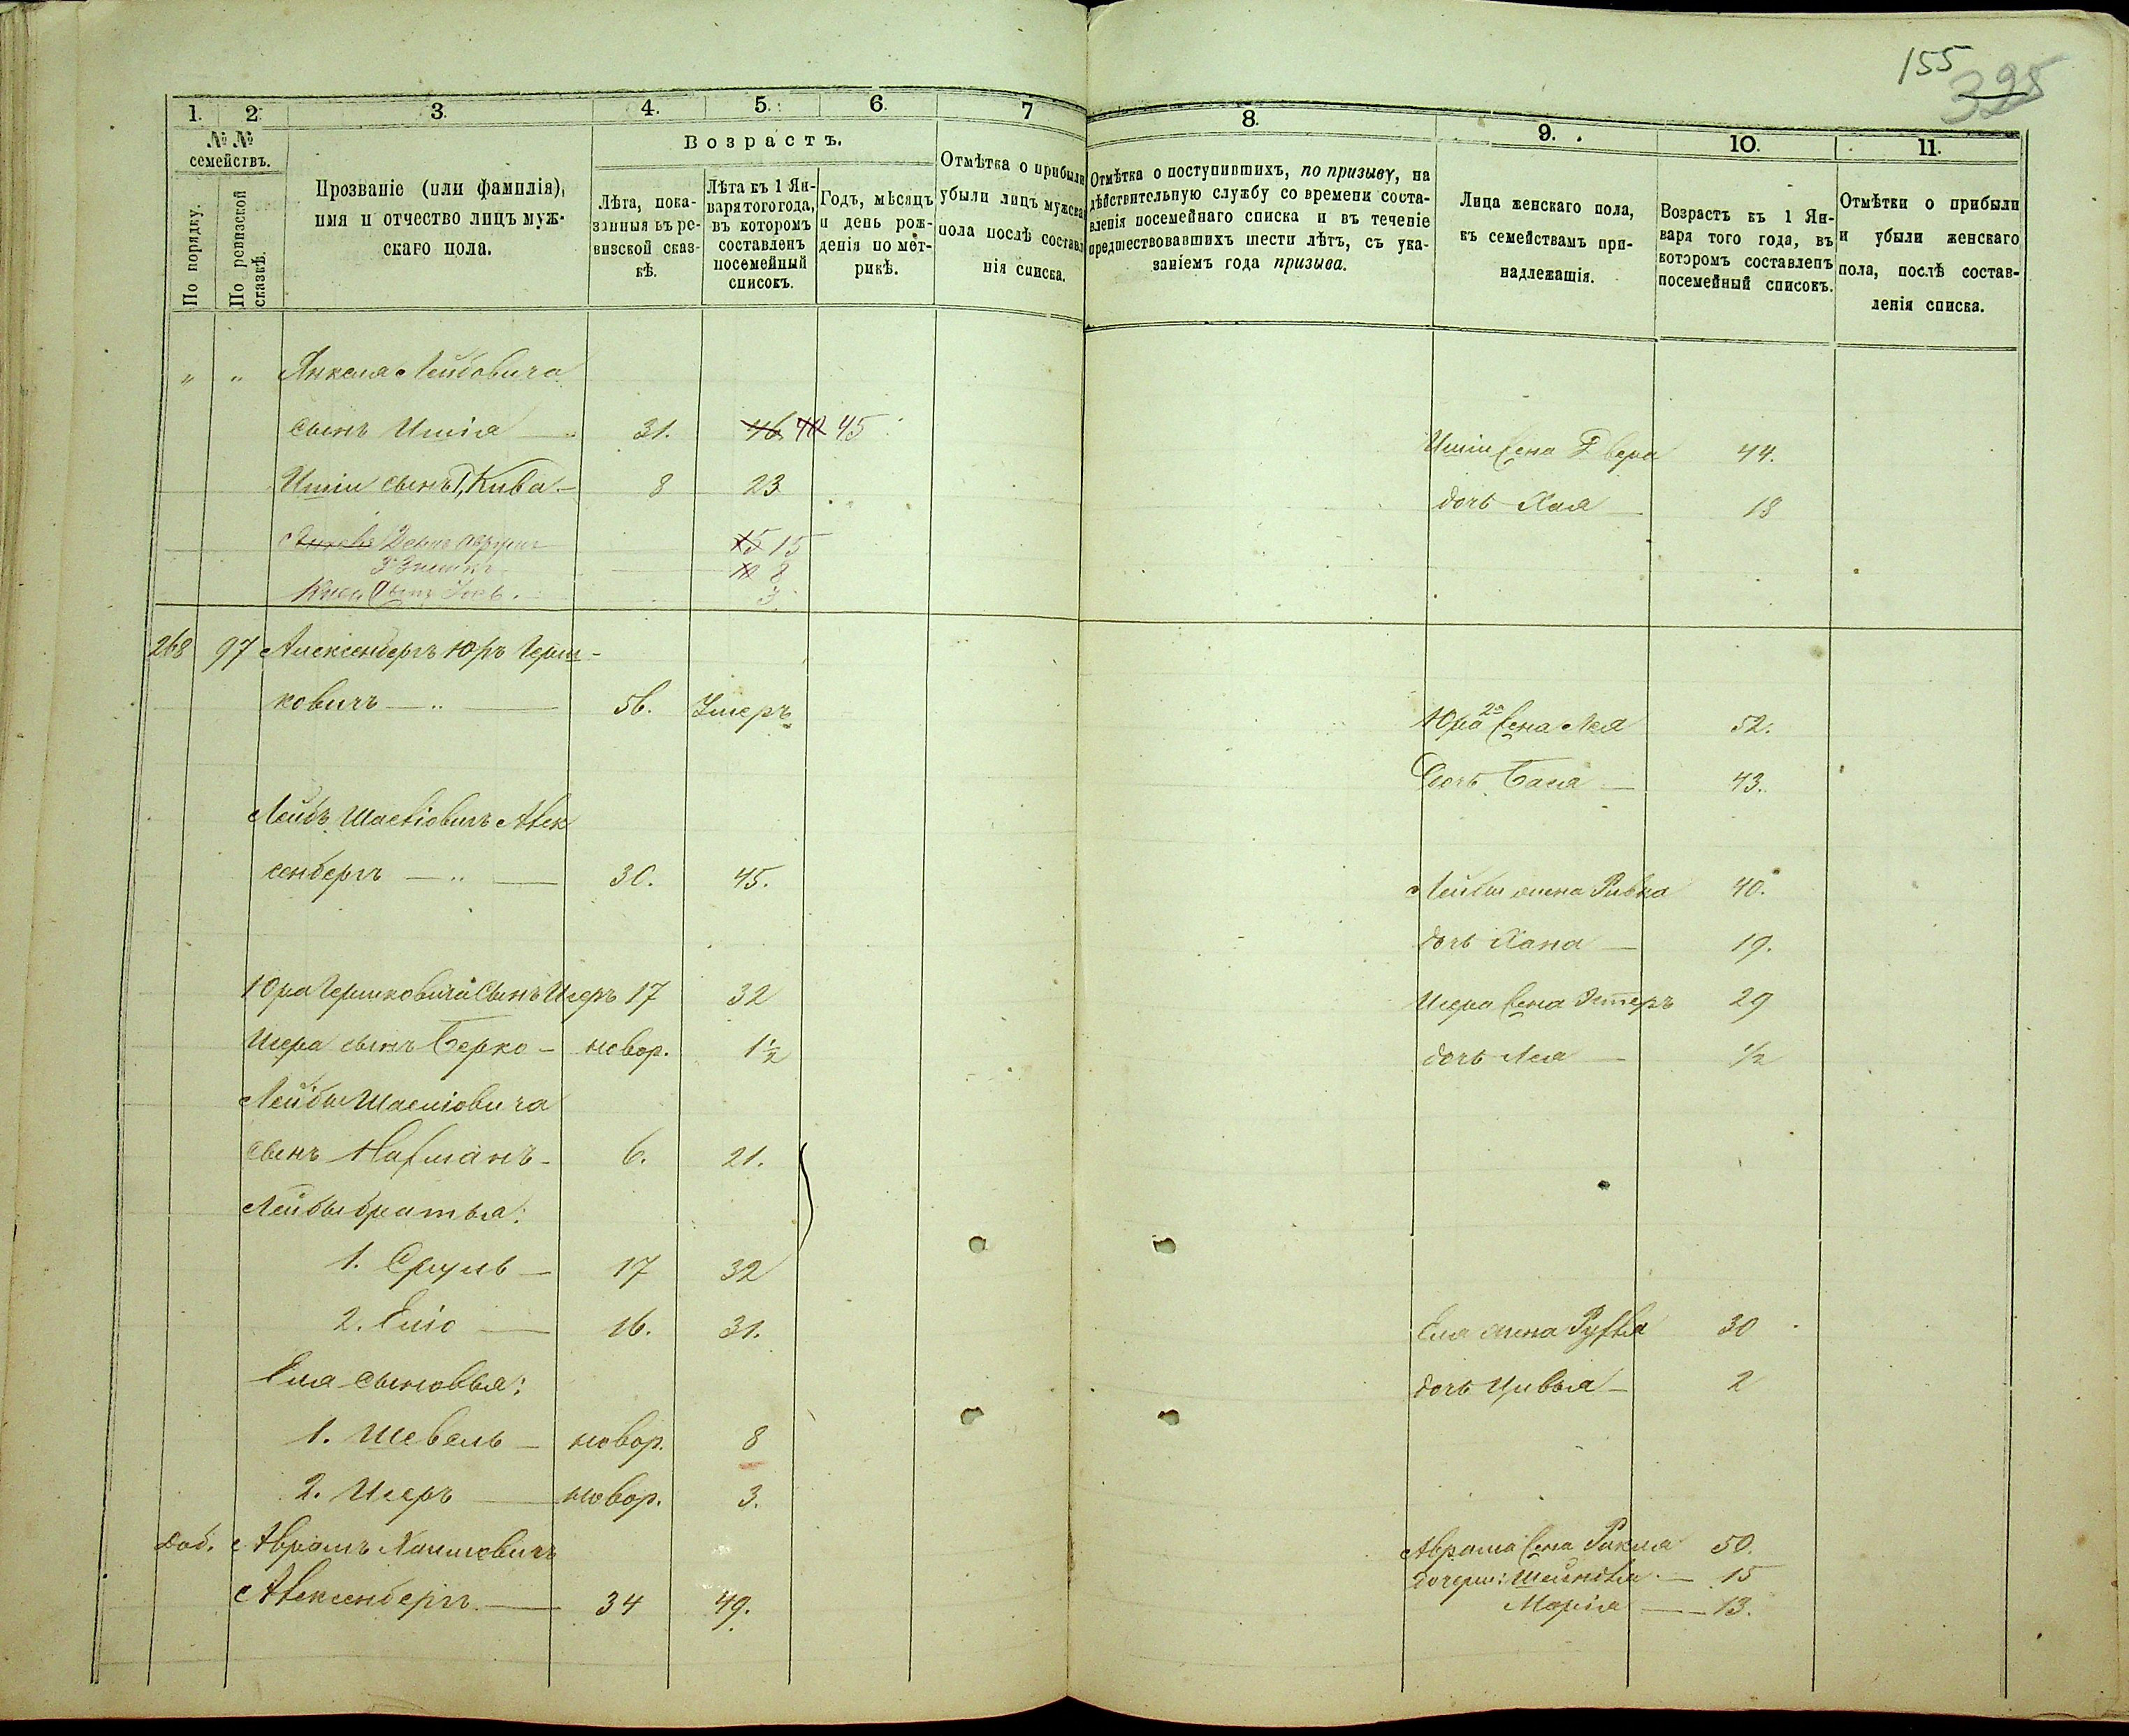 155
395
1. 2. 3. 4. 5. 6. 7 8. 9. 10. 11.
№ №
семействъ.
По порядку.
По ревизской сказкѣ.
Прозваніе (или фамилія),
имя и отчество лицъ муж-
скаго пола.
Возрастъ.
Лѣта, пока-
занныя въ ре-
визской сказ-
кѣ.
Лѣта къ 1 Ян-
варя того года,
въ которомъ
составленъ
посемейный
списокъ.
Годъ, мѣсяцъ
и день рож-
денія по мет-
рикѣ.
Отмѣтка о прибыли
убыли лицъ мужска
пола послѣ составл
нія списка.
Отмѣтка о поступившихъ, по призыву, на
дѣйствительную службу со времени соста-
вленія посемейнаго списка и въ теченіе
предшествовавшихъ шести лѣтъ, съ ука-
заніемъ года призыва.
Лица женскаго пола,
къ семействамъ при-
надлежащія.
Возрастъ къ 1 Ян-
варя того года, въ
которомъ составленъ
посемейный списокъ.
Отмѣтки о прибыли
и убыли женскаго
пола, послѣ состав-
ленія списка.
" " Янкеля Лейбовича
сынъ Иткія 31. 46 40 45
Двера 44.
сынъ 1, Кива 8 23 дочь Хая 18
15 15
10 8
3
268 97 Алексенбергъ Юръ Герш-
ковичъ — " — 56. Умеръ
Юра 2я жена Лея 52.
Дочь Бася — 43.
Лейбъ Алек
сенбергъ — " — 30. 45. Лейбы жена Ривка 40.
дочь Хана — 19.
Юра Гершковича сынъ Исеръ 17 32 Исера жена Эстеръ 29
Исера сынъ Берко — новор. 1½ дочь Лея — ½
Лейбы
сынъ Нахманъ — 6. 21.
Лейбы братья:
1. Сруль — 17 32
2. Еліо — 16. 31. Еля жена Рухля 30
Еля сыновья: дочь Цивья — 2
1. Шевель — новор. 8
2. Исеръ — новор. 3.
доб. Абрамъ Хаимовичъ Абрама жена Рикля 50.
Алексенбергъ. — 34 49. дочери: — 15
Марія — 13.